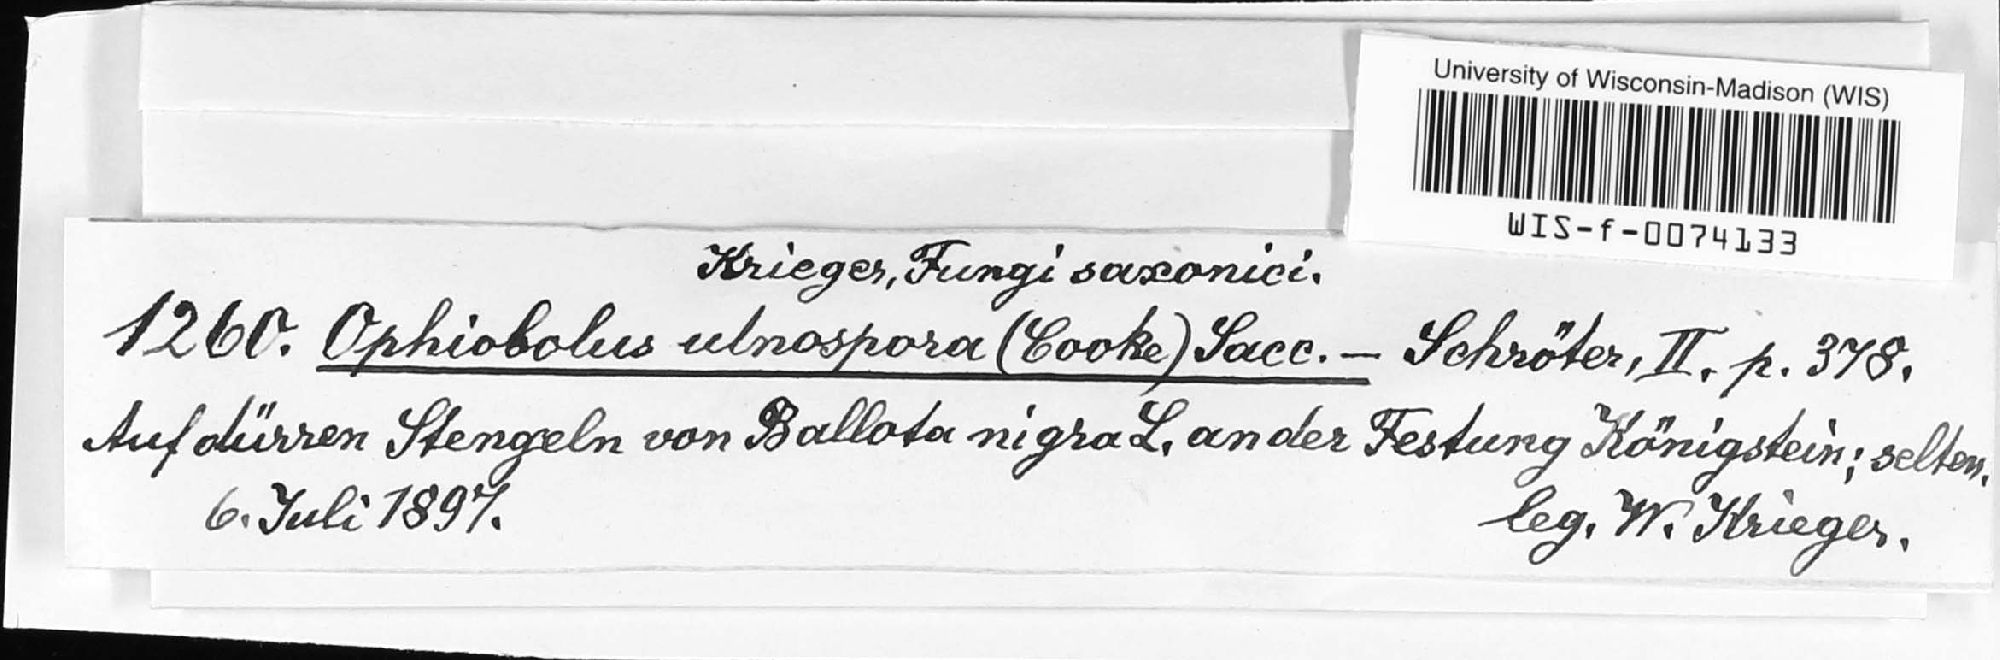 University of Wisconsin-Madison (WIS)
WIS-f-0074133
Krieger, Fungi saxonici.
1260. Ophiobolus ulnospora (Cooke) Sacc. — Schröter, II. p. 378.
Auf dürren Stengeln von Ballota nigra L. an der Festung Königstein; selten.
6. Juli 1897.
leg. W. Krieger.